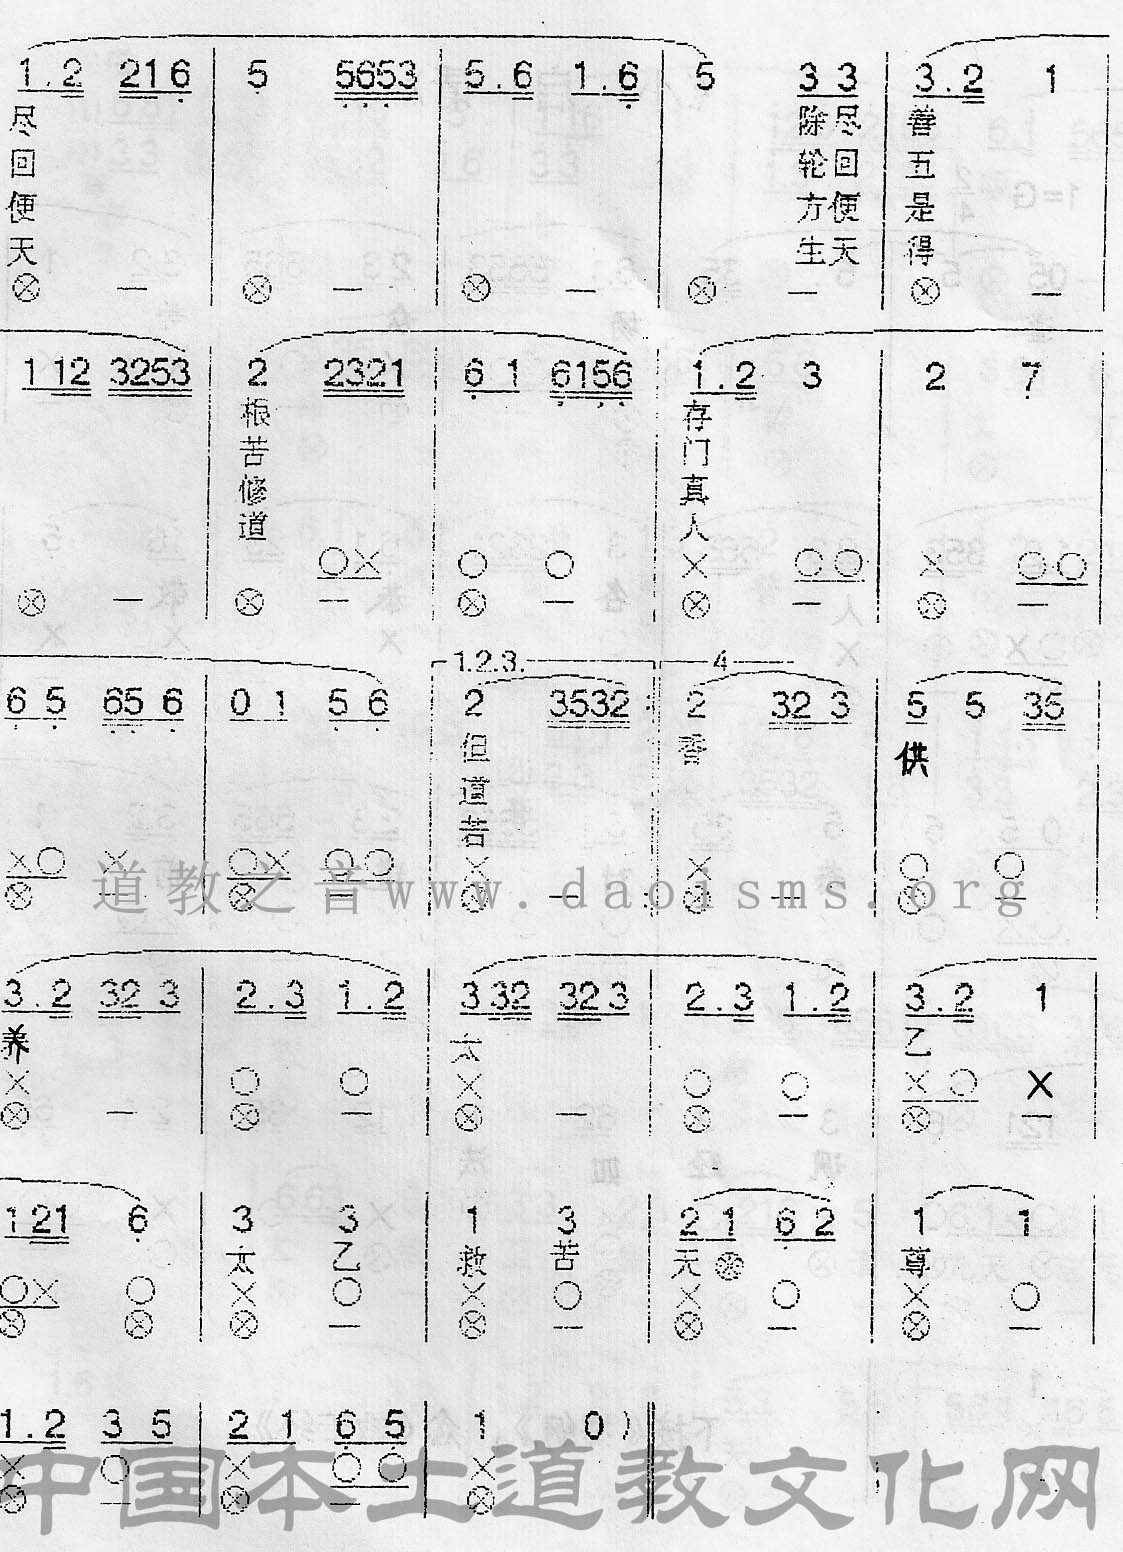 1.2 216 5 5653 5.6 1.6 5 3 3 3.2 1
尽 除尽 善
回 轮回 五
便 方便 是
天 生天 得
⊗ — ⊗ — ⊗ — ⊗ — ⊗ —
112 3253 2 2321 6 1 6156 1.2 3 2 7
根 存
苦 门
修 真
道 人
○× ○ ○ × ○○ × ○○
⊗ — ⊗ — ⊗ — ⊗ — ⊗ —
1.2.3. 4
6 5 65 6 0 1 5 6 2 3532 2 32 3 5 5 35
但 香 供
道
苦
×○ × ○× ○○ × × ○ ○
⊗ ⊗ — ⊗ — ⊗ — ⊗ —
道教之音www.daoisms.org
3.2 32 3 2.3 1.2 3 32 32 3 2.3 1.2 3.2 1
养 太 乙
× ○ ○ × ○ ○ × ○ ×
⊗ — ⊗ — ⊗ — ⊗ — ⊗ —
121 6 3 3 1 3 2 1 6 2 1 1
太 乙 救 苦 天 ⊗ 尊
○× ○ × ○ × ○ × ○ × ○
⊗ ⊗ ⊗ — ⊗ — ⊗ — ⊗ —
1.2 3 5 2 1 6 5 1 0 )
× ○ × ○ ○ ×
⊗ — ⊗ — ⊗
中国本土道教文化网